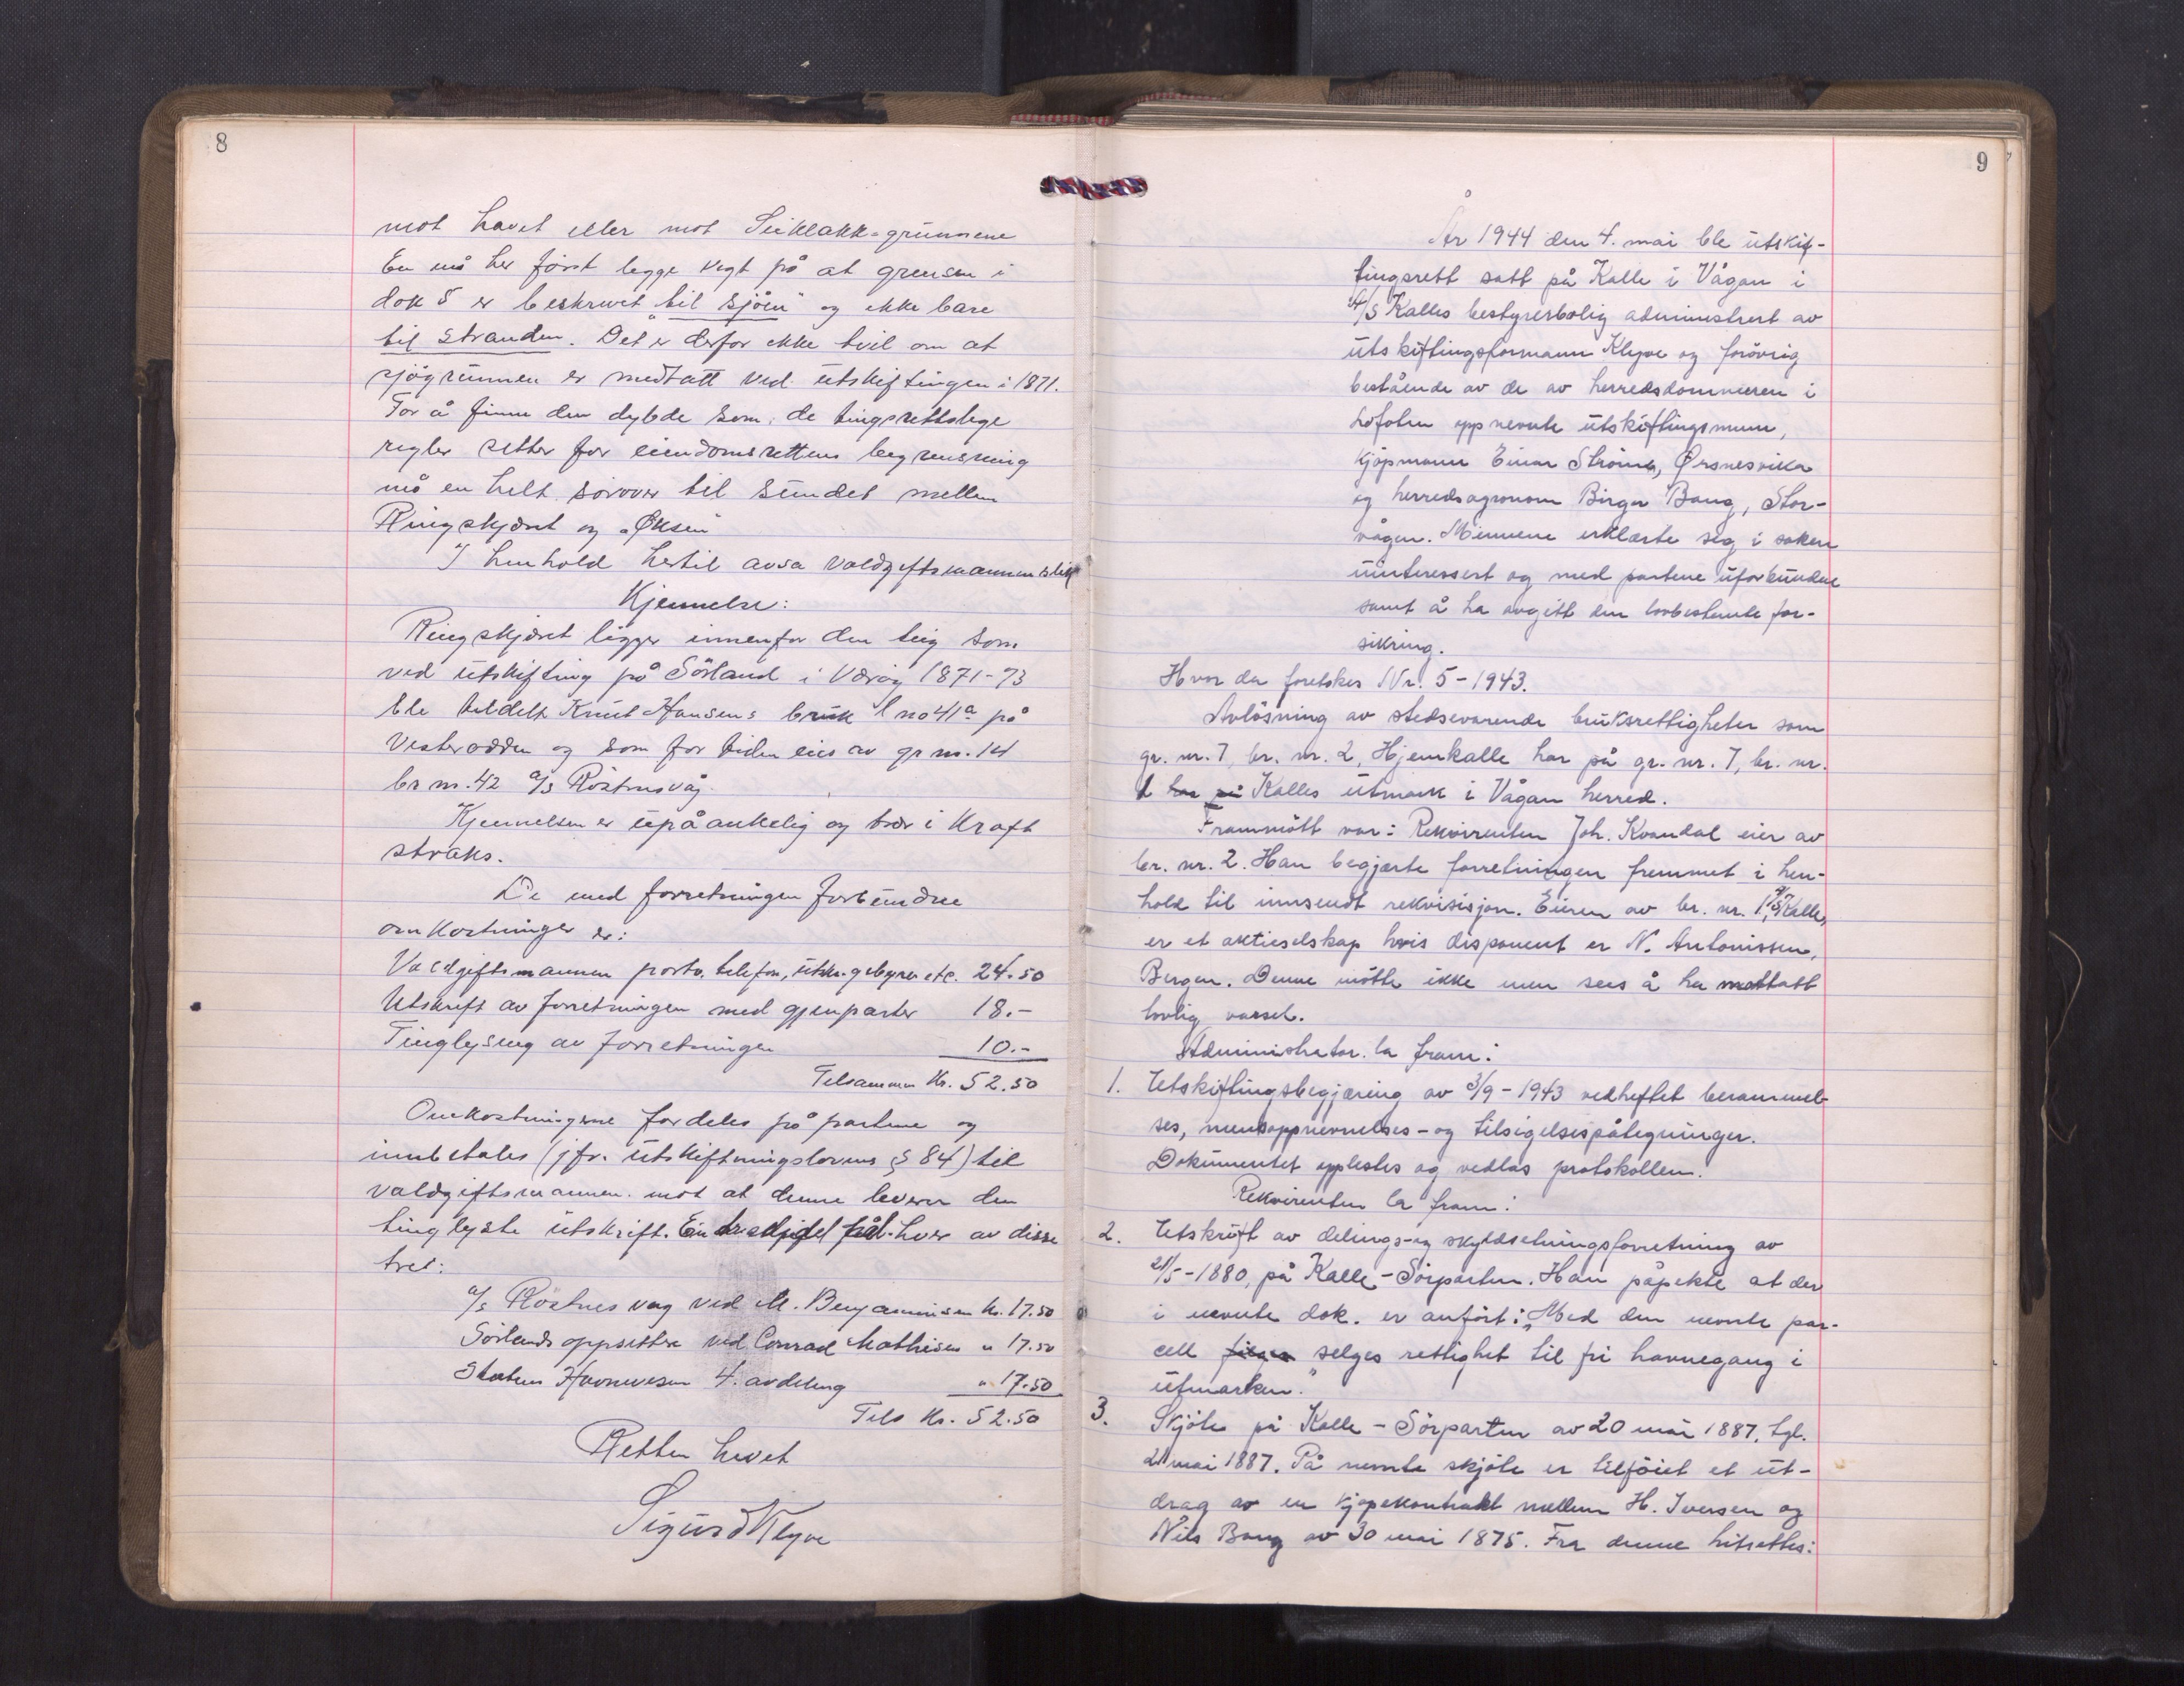 8
mot havet eller mot Seiklakk-grunnene
En må her först legge vegt på at grensen i
dok 5 er beskrevet "til sjöen" og ikke bare
til stranden. Det er derfor ikke tvil om at
sjögrunnen er medtatt ved utskiftingen i 1871.
For å finne den dybde som de tingsrettslege
regler setter for eiendomsrettens begrensning
må en helt sörover til sundet mellem
Ringskjæret og "Öksen"
I henhold hertil avsa valdgiftsmannen slik
Kjennelse:
Ringskjæret ligger innenfor den teig som
ved utskifting på Sörland i Væröy 1871-73
ble tildelt Knut Hansens bruk l no 41a på
Vesterodden og som for tiden eies av gr nr. 14
br nr. 42 a/s Röstnesvåg.
Kjennelsen er upåankelig og trær i kraft
straks.
De med forretningen forbundne
omkostninger er:
Valdgiftsmannen porto, telefon, utskr. gebyrer etc. 24.50
Utskrift av forretningen med gjenparter 18.-
Tinglysing av forretningen 10.-
Tilsammen Kr. 52.50
Omkostningene fordeles på partene og
innbetales (jfr. utskiftningslovens § 84) til
valdgiftsmannen mot at denne leverer den
tinglyste utskrift. En tredjedel på hver av disse
tre:
a/s Röstnesvåg ved M. Benjaminsen kr. 17.50
Sörlands oppsittere ved Conrad Mathisen " 17.50
Statens Havnevesen 4. avdeling " 17.50
Tils Kr. 52.50
Retten hevet
Sigurd Klyve
9
År 1944 den 4. mai ble utskif-
tingsrett satt på Kalle i Vågan i
A/S Kalles bestyrerbolig administrert av
utskiftingsformann Klyve og forövrig
bestående av de av herredsdommeren i
Lofoten oppnevnte utskiftingsmenn,
kjöpmann Einar Ströme, Ørsnesvika
og herredsagronom Birger Bang, Stor-
vågen. Mennene erklærte seg i saken
uinteressert og med partene uforbundne
samt å ha avgitt den lovbestemte for-
sikring.
Hvor da foretokes Nr. 5-1943.
Avlösning av stedsevarende bruksrettigheter som
gr. nr. 7, br. nr. 2, Hjemkalle har på gr. nr. 7, br. nr.
1 har på Kalles utmark i Vågan herred.
Frammött var: Rekvirenten Joh. Kvandal eier av
br. nr. 2. Han begjærte forretningen fremmet i hen-
hold til innsendt rekvisisjon. Eieren av br. nr. 1, A/S Kalle,
er et aktieselskap hvis disponent er N. Antonissen,
Bergen. Denne mötte ikke men sees å ha mottatt
lovlig varsel.
Administrator la fram:
1. Utskiftingsbegjæring av 3/9-1943 vedheftet berammel-
ses, mennsoppnevnelses- og tilsigelsespåtegninger.
Dokumentet opplestes og vedlas protokollen.
Rekvirenten la fram:
2. Utskrift av delings- og skyldsetningsforretning av
21/5-1880, på Kalle-Sörparten. Han påpekte at der
i nevnte dok. er anfört: "Med den nevnte par-
cell fölger selges rettighet til fri havnegang i
utmarken."
3. Skjöte på Kalle-Sörparten av 20 mai 1887, tgl.
21 mai 1887. På nevnte skjöte er tilföiet et ut-
drag av en kjöpekontrakt mellem H. Iversen og
Nils Bang av 30 mai 1875. Fra denne hitsettes: